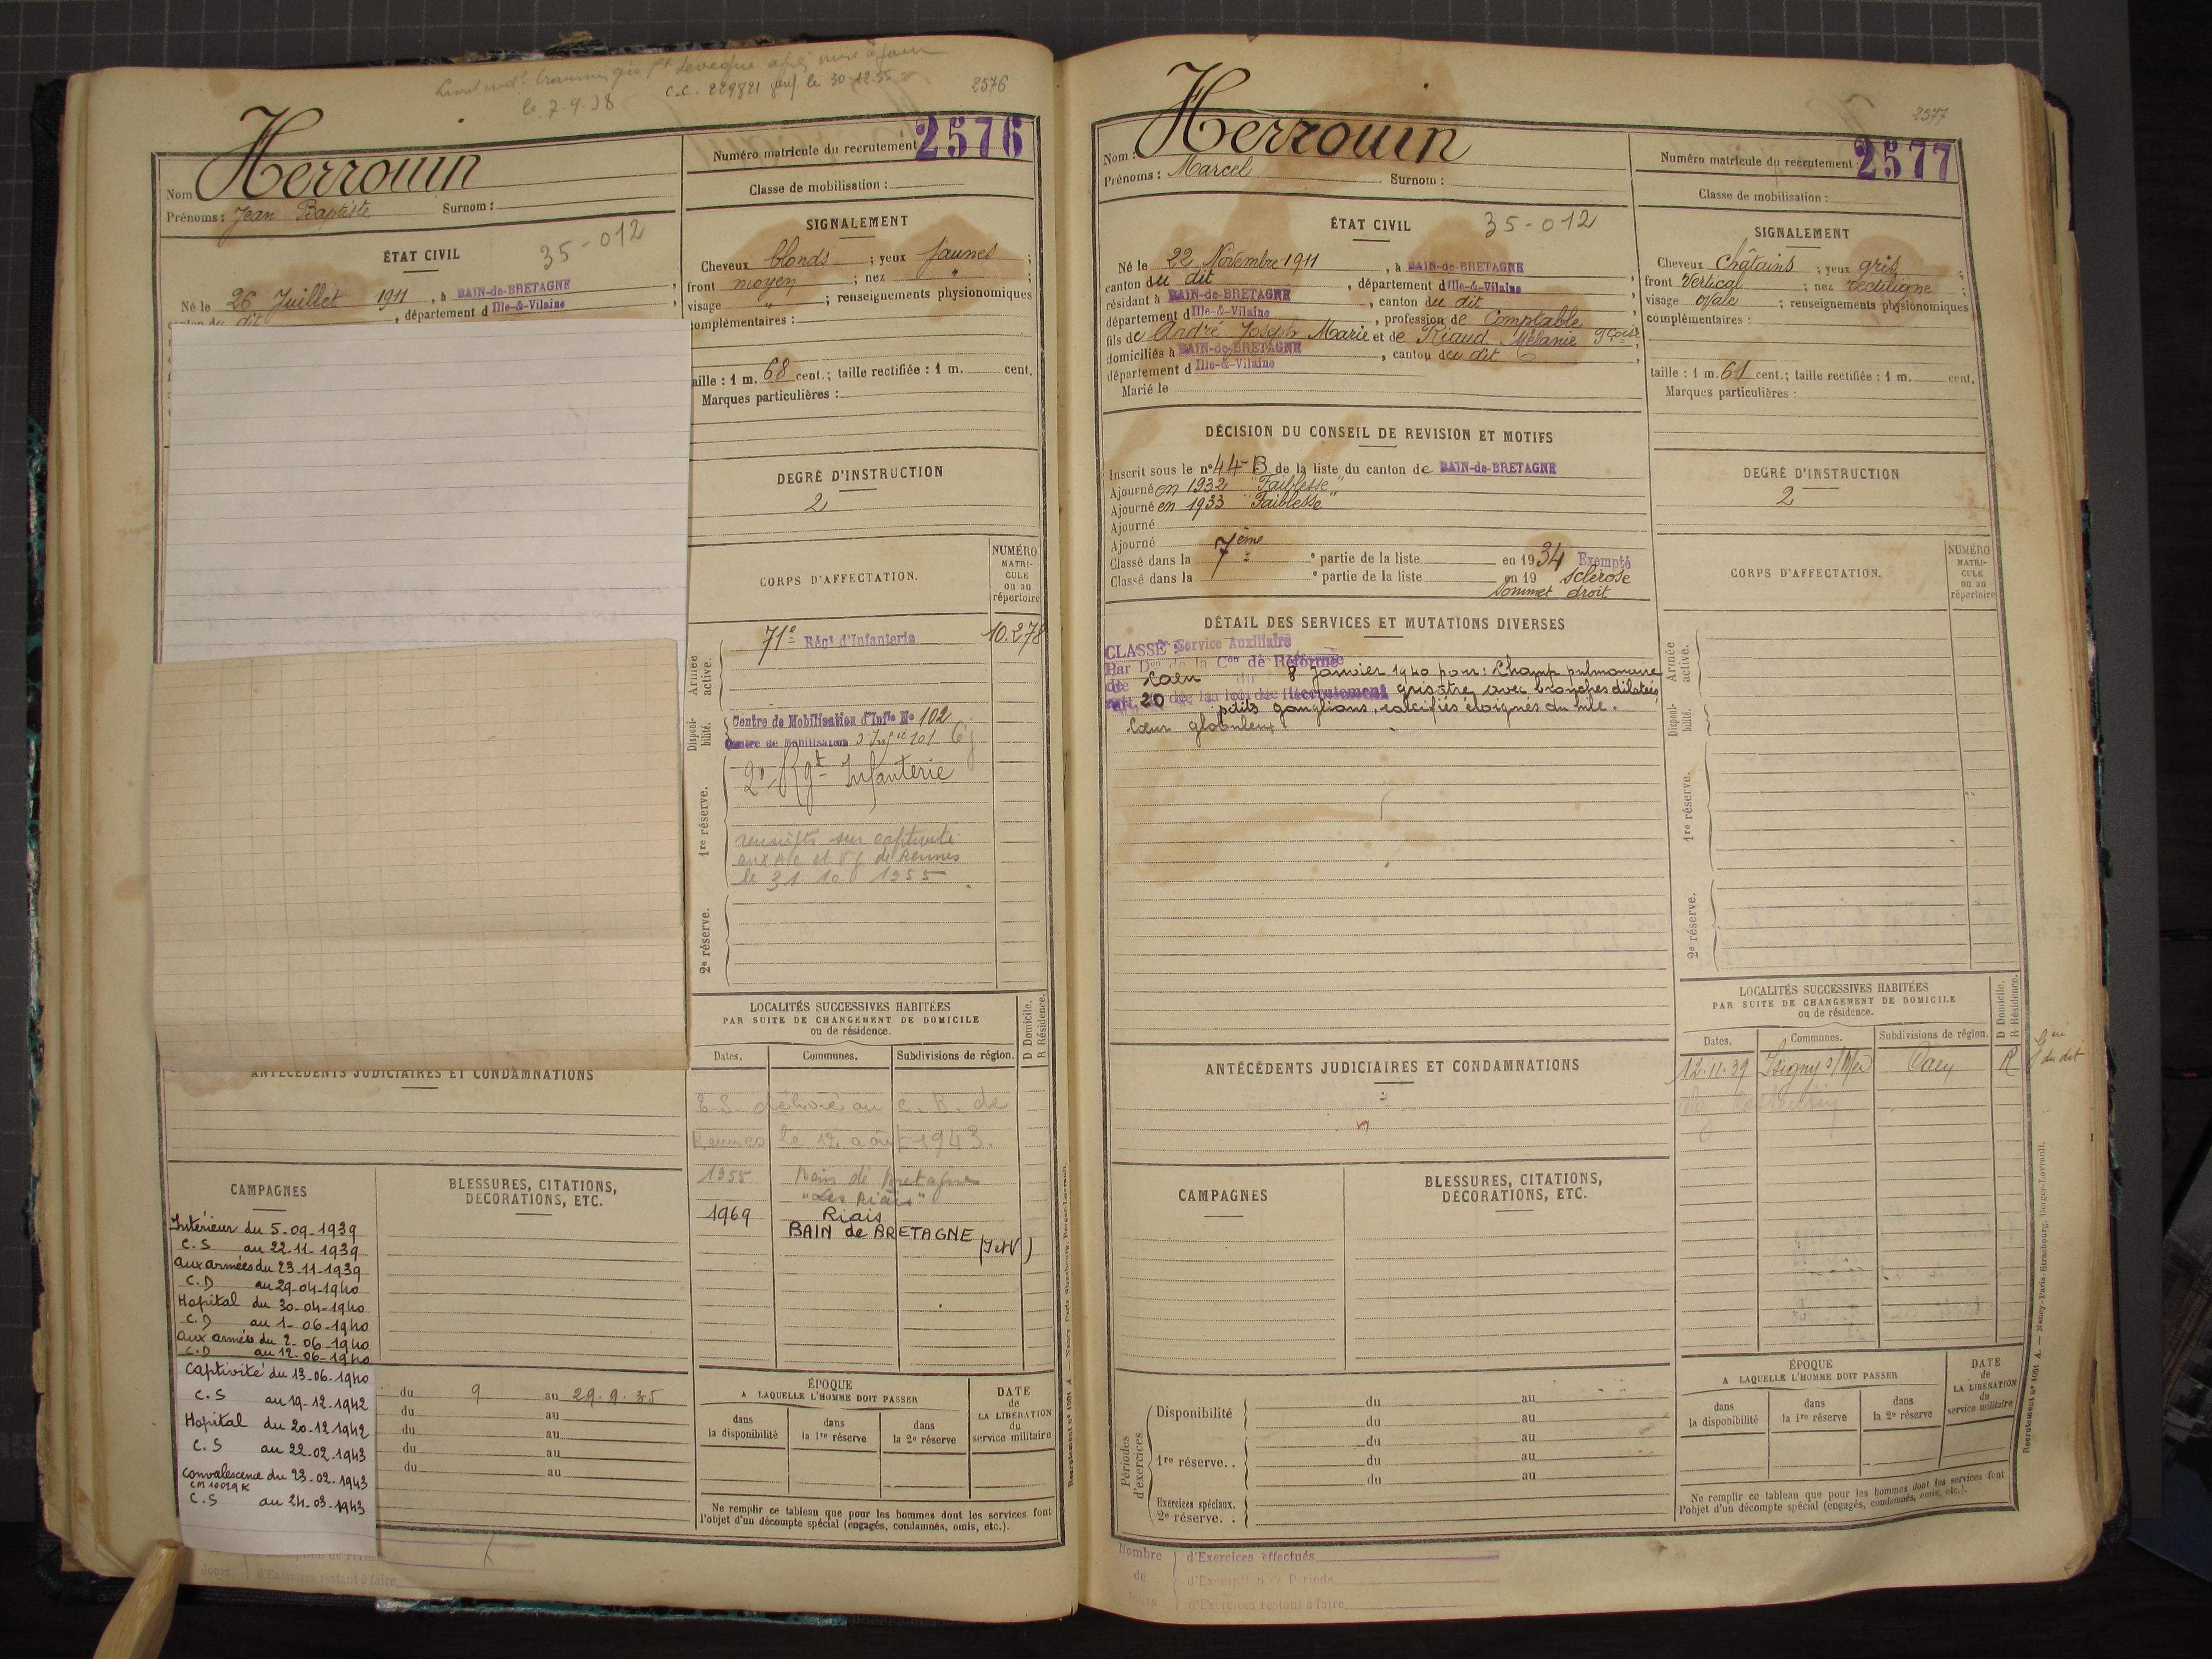 le 7.9.38
C.C. 229821 le 30-12.55
2576
Nom Herrouin
Prénoms : Jean Baptiste Surnom :
Numéro matricule du recrutement 2576
Classe de mobilisation :
ÉTAT CIVIL 35-012
Né le 26 Juillet 1911, à BAIN-de-BRETAGNE
canton du dit, département d Ille-&-Vilaine
SIGNALEMENT
Cheveux blonds ; yeux jaunes ;
front moyen ; nez " ;
visage " ; renseignements physionomiques
complémentaires :
taille : 1 m. 68 cent.; taille rectifiée : 1 m. cent.
Marques particulières :
DEGRÉ D'INSTRUCTION
2
CORPS D'AFFECTATION.
NUMÉRO
MATRI-
CULE
ou au
répertoire
Armée active.
71e Régt d'Infanterie 10.278
Disponi-
bilité.
Centre de Mobilisation d'Inf'ie No 102
Centre de Mobilisation d'Inf ie 101
1re réserve.
2e Rgt Infanterie
sur captivité
aux de Rennes
le 31 10 1955
2e réserve.
LOCALITÉS SUCCESSIVES HABITÉES
PAR SUITE DE CHANGEMENT DE DOMICILE
ou de résidence.
D Domicile.
R Résidence.
Dates. Communes. Subdivisions de région.
E.S. délivré au C.R. de
Rennes le 12 août 1943.
1955 Bain de Bretagne
"Les Riais"
1969 Riais
BAIN de BRETAGNE
ANTÉCÉDENTS JUDICIAIRES ET CONDAMNATIONS
CAMPAGNES
BLESSURES, CITATIONS,
DÉCORATIONS, ETC.
Intérieur du 5-09-1939
C.S au 22-11-1939
aux armées du 23-11-1939
C.D au 29-04-1940
Hopital du 30-04-1940
C.D au 1-06-1940
aux armées du 2-06-1940
C.D au 12-06-1940
Captivité du 13-06-1940
C.S au 19-12-1942
Hopital du 20-12-1942
C.S au 22-02-1943
convalescence du 23-02-1943
C.S au 24-03-1943
du 9 au 29.9.35
du au
du au
du au
du au
ÉPOQUE
A LAQUELLE L'HOMME DOIT PASSER
dans
la disponibilité
dans
la 1re réserve
dans
la 2e réserve
DATE
de
LA LIBÉRATION
du
service militaire
Ne remplir ce tableau que pour les hommes dont les services font
l'objet d'un décompte spécial (engagés, condamnés, omis, etc.).
Jours d'Exercices restant à faire
2577
Nom : Herrouin
Prénoms : Marcel Surnom :
Numéro matricule du recrutement 2577
Classe de mobilisation :
ÉTAT CIVIL 35-012
Né le 22 Novembre 1911, à BAIN-de-BRETAGNE
canton du dit, département d Ille-&-Vilaine
résidant à BAIN-de-BRETAGNE, canton du dit
département d Ille-&-Vilaine, profession de Comptable
fils de André Joseph Marie et de Riaud Mélanie Fçoise
domiciliés à BAIN-de-BRETAGNE, canton du dit
département d Ille-&-Vilaine
Marié le
SIGNALEMENT
Cheveux Châtains ; yeux gris ;
front Vertical ; nez rectiligne ;
visage ovale ; renseignements physionomiques
complémentaires :
taille : 1 m. 61 cent.; taille rectifiée : 1 m. cent.
Marques particulières :
DÉCISION DU CONSEIL DE REVISION ET MOTIFS
Inscrit sous le n° 44-B de la liste du canton de BAIN-de-BRETAGNE
Ajourné en 1932 "Faiblesse"
Ajourné en 1933 "Faiblesse"
Ajourné
Ajourné
Classé dans la 7ème e partie de la liste en 1934 Exempté
Classé dans la e partie de la liste en 19 sclérose
sommet droit
DEGRÉ D'INSTRUCTION
2
DÉTAIL DES SERVICES ET MUTATIONS DIVERSES
CLASSÉ Service Auxiliaire
Par Don de la Con de Réforme
de Caen du 8 Janvier 1940 pour : Champ pulmonaire
art. 20 de la loi de Recrutement grisâtre avec bronches dilatées
petits ganglions, calcifiés éloignés du hile.
Cœur globuleux.
CORPS D'AFFECTATION.
NUMÉRO
MATRI-
CULE
ou au
répertoire
Armée active.
Disponi-
bilité.
1re réserve.
2e réserve.
ANTÉCÉDENTS JUDICIAIRES ET CONDAMNATIONS
LOCALITÉS SUCCESSIVES HABITÉES
PAR SUITE DE CHANGEMENT DE DOMICILE
ou de résidence.
D Domicile.
R Résidence.
Dates. Communes. Subdivisions de région.
12.11.39 Isigny s/Mer Caen R
CAMPAGNES
BLESSURES, CITATIONS,
DÉCORATIONS, ETC.
Périodes
d'exercices
Disponibilité du au
du au
1re réserve. . du au
du au
du au
Exercices spéciaux.
2e réserve. .
ÉPOQUE
A LAQUELLE L'HOMME DOIT PASSER
dans
la disponibilité
dans
la 1re réserve
dans
la 2e réserve
DATE
de
LA LIBÉRATION
du
service militaire
Ne remplir ce tableau que pour les hommes dont les services font
l'objet d'un décompte spécial (engagés, condamnés, omis, etc.).
Recrutement n° 1091 A. — Nancy-Paris-Strasbourg, Berger-Levrault.
Nombre d'Exercices effectués
de d'Exemption de Période
Jours d'Exercices restant à faire